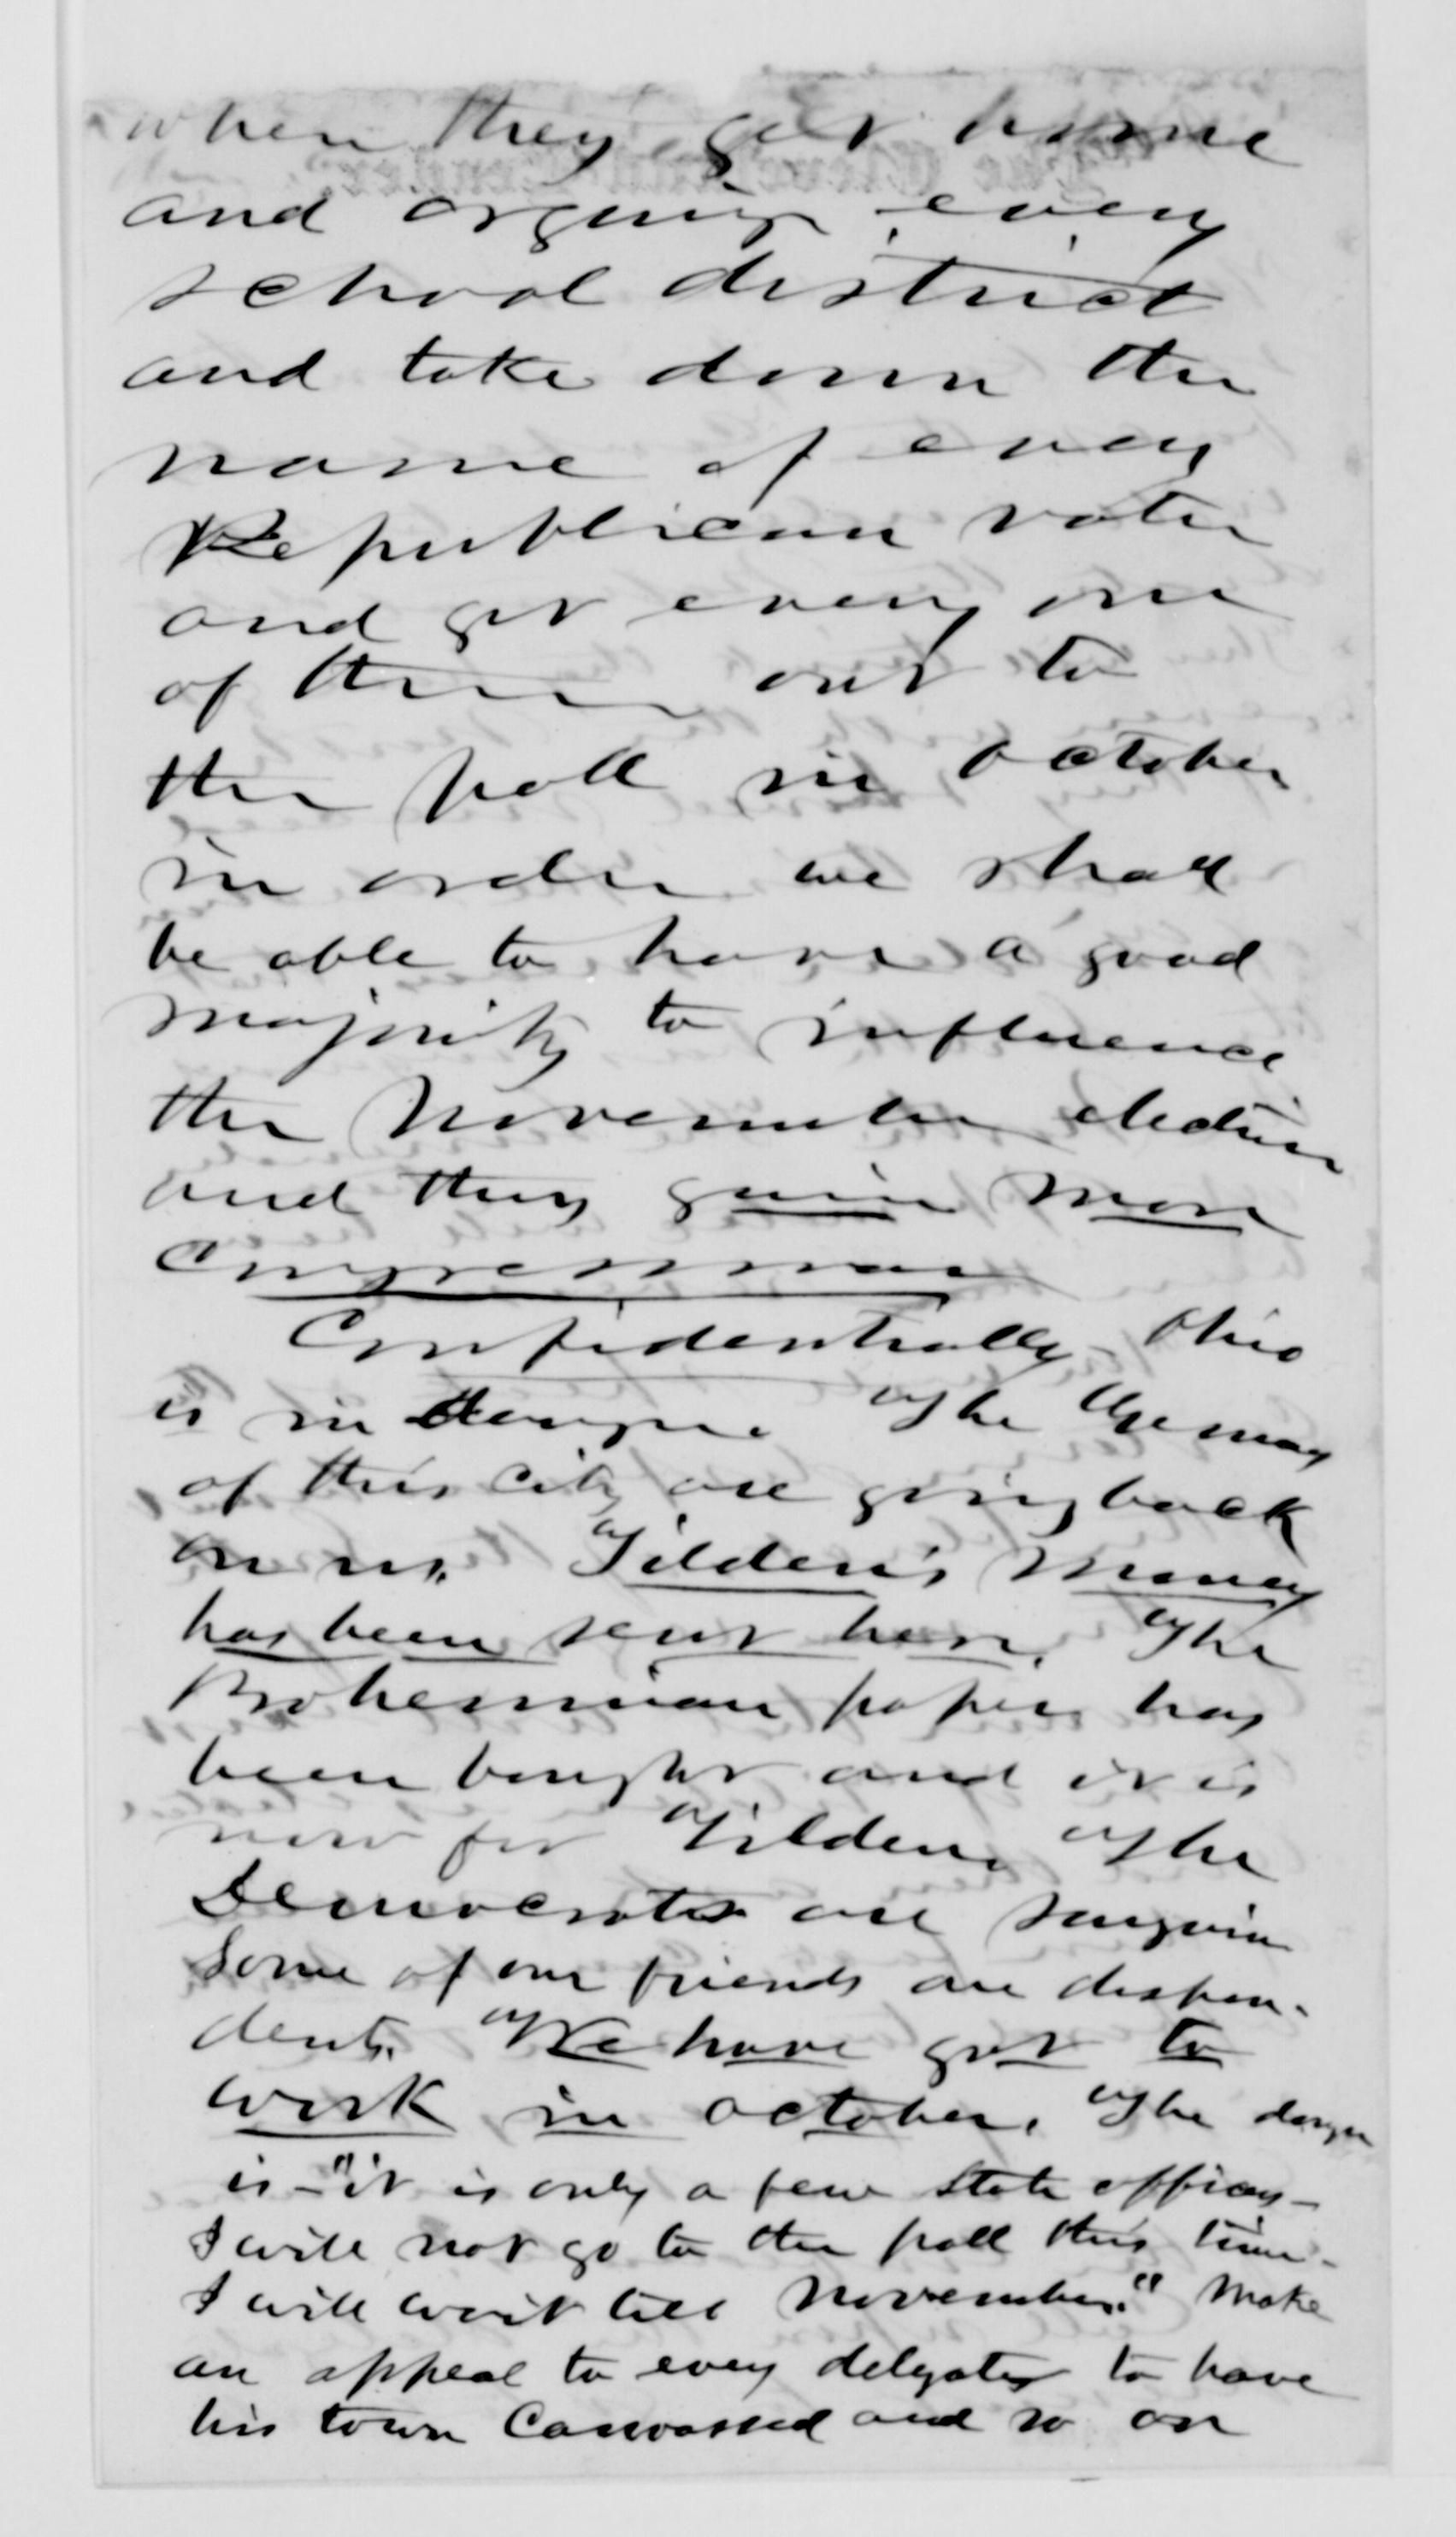 when they get home
and organize every
school district
and take down the
name of every
Republican voter
and get every one
of them out to
the poll in October
in order we shall
be able to have a good
majority to influence
the November election
and thus gain more
Congressmen
Confidentially Ohio
is in danger. The Germans
of this city are going back
on us. Tilden's money
has been sent here. The
Bohemian paper has
been bought and it is
now for Tilden. The
Democrats are sanguine
Some of our friends are despon-
dent. We have got to
work in October. The danger
is - "it is only a few state offices -
I will not go to the poll this time -
I will wait till November." Make
an appeal to every delegate to have
his town canvassed and so on